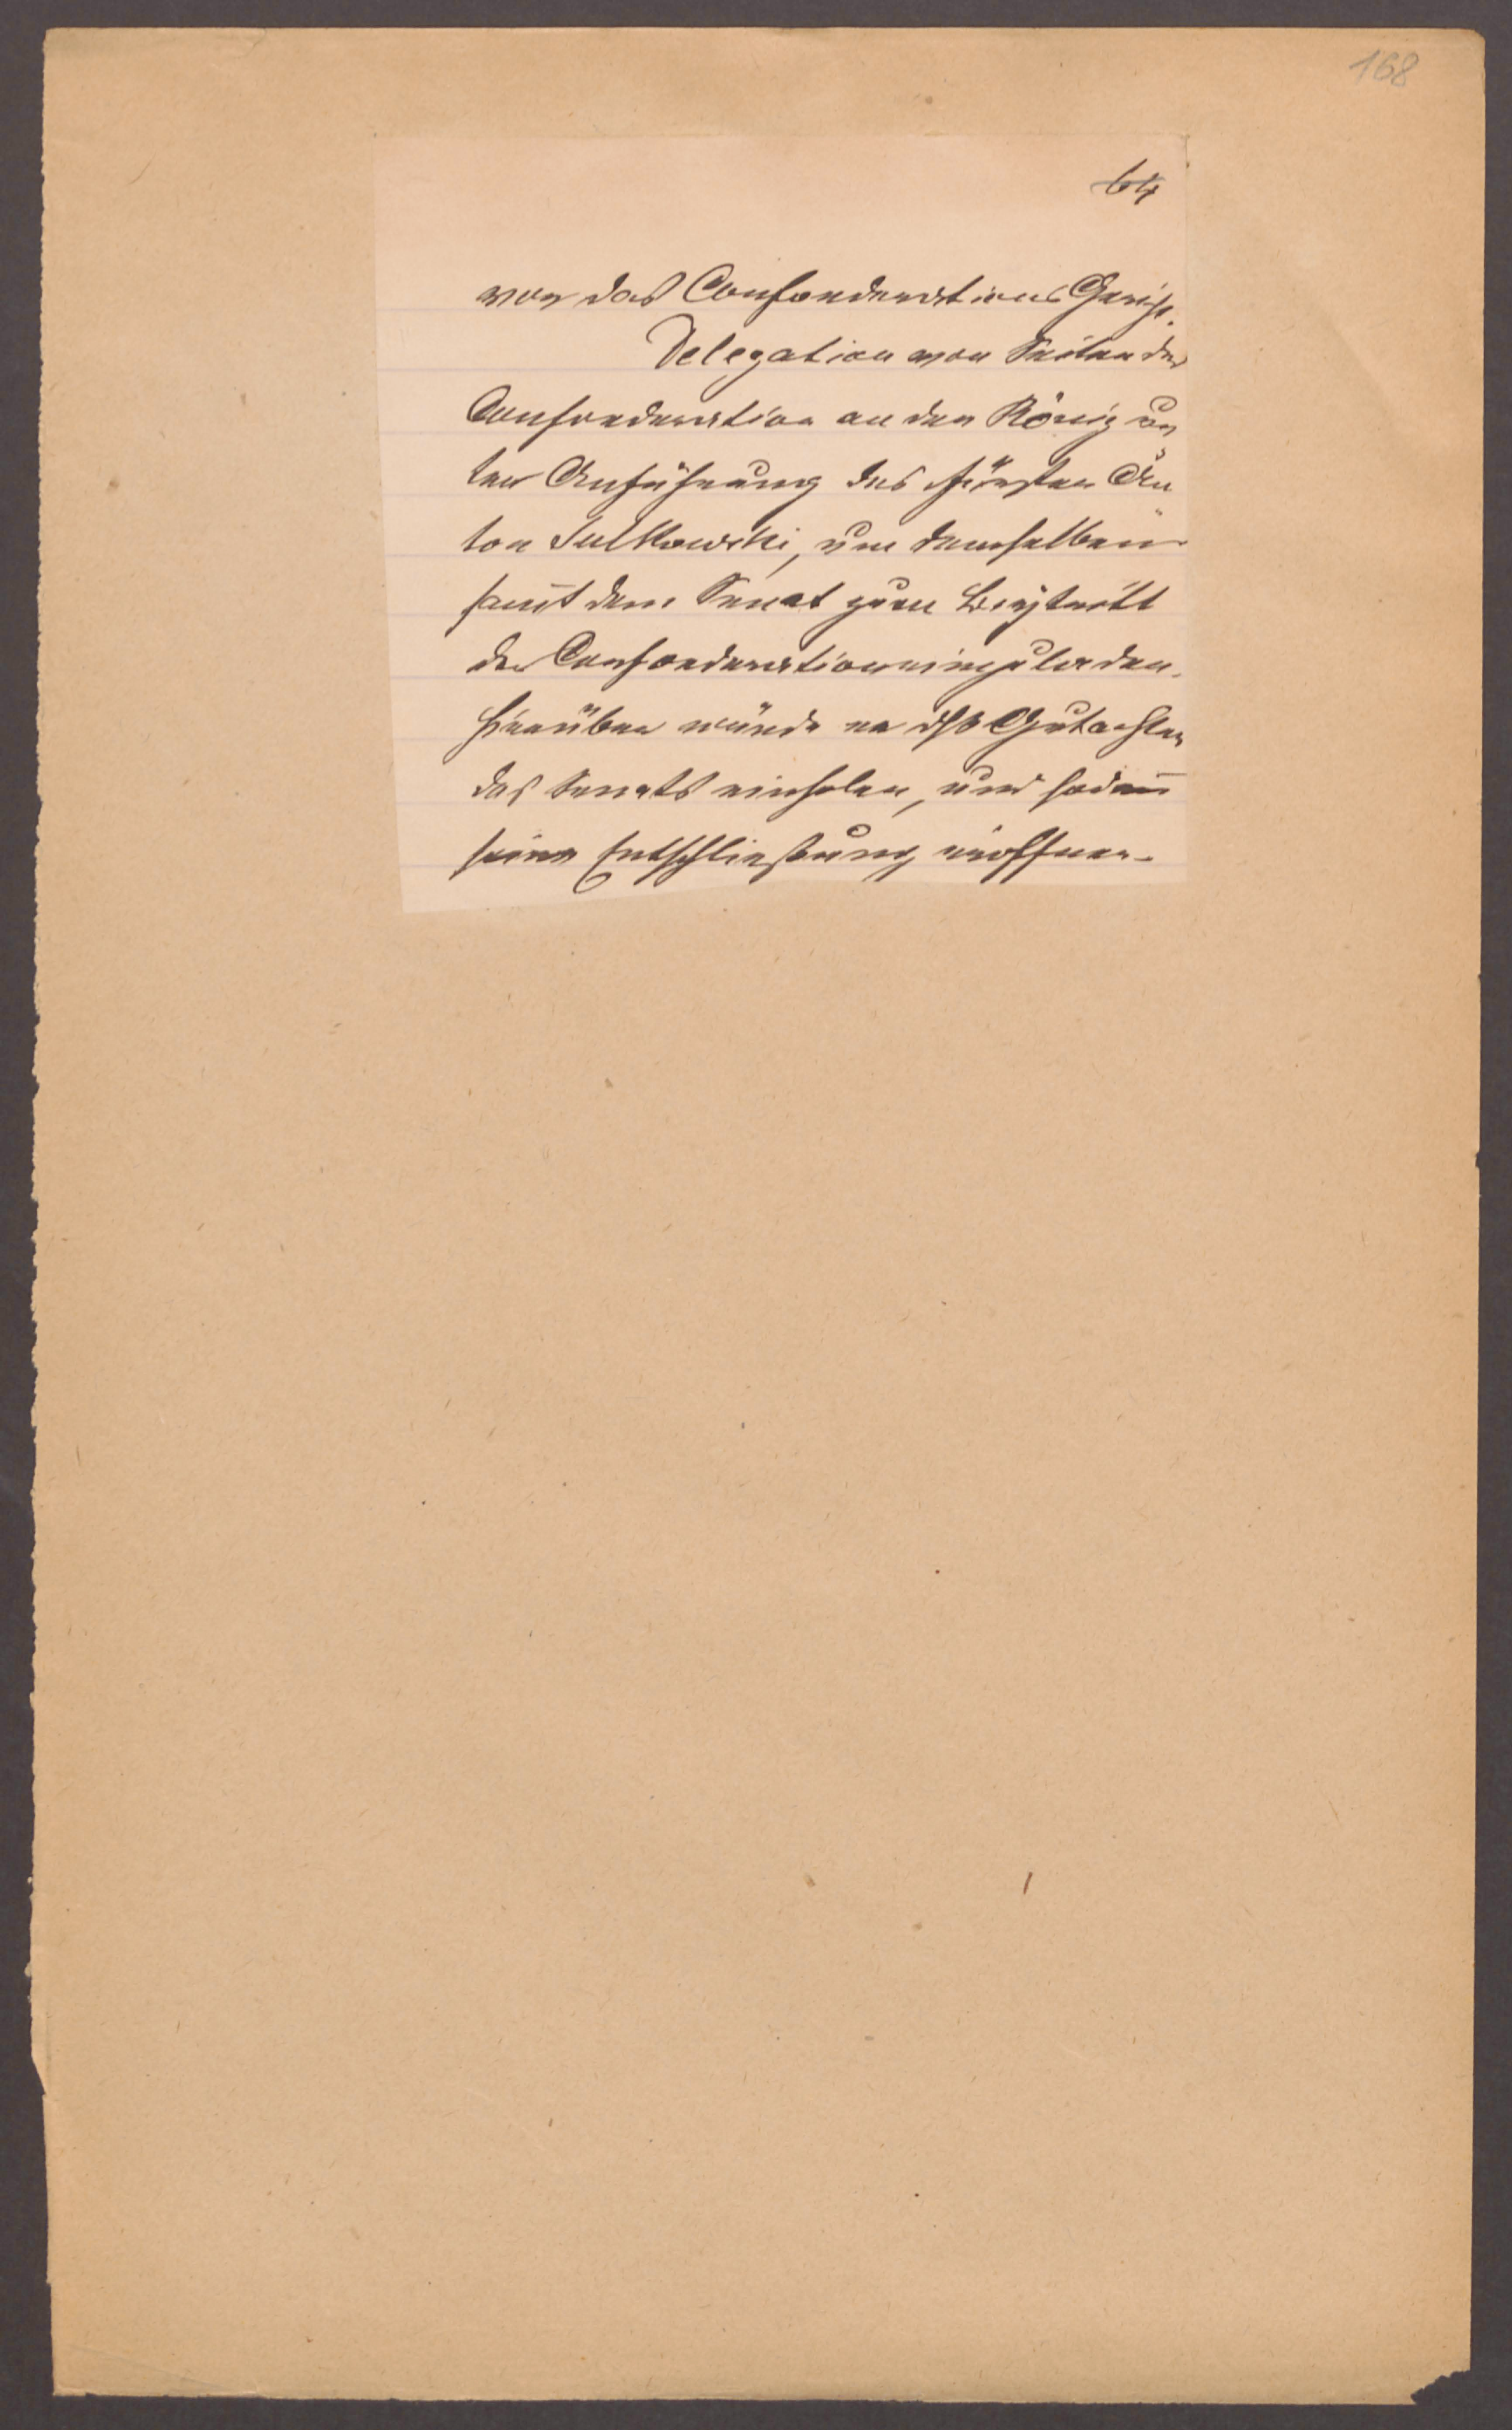 168
64
vor das Confoederations Gericht.
Delegation von Seiten der
Confoederation an den König un„
ter Anführung des Fürsten An„
ton Sulkowski, um denselben
samt dem Senat zum Beytritt
der Confoederation einzuladen.
Hierüber würde er das Gutachten
des Senats einholen, und sodann
seine Entschließung eröffnen.